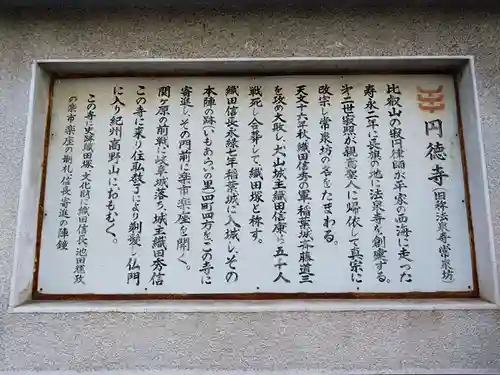 円徳寺(旧称法泉寺・常泉坊)
比叡山の寂円律師が平家の西海に走った
寿永二年に長旗の地に法泉寺を創建する。
第二世寂照が親鸞聖人に帰依して真宗に
改宗し常泉坊の名をたまわる。
天文十六年秋織田信秀の軍、稲葉城斉藤道三
を攻め大敗し、犬山城主織田信康ら五十人
戦死し合葬して、織田塚と称す。
織田信長永禄七年稲葉城に入城し、その
本陣の跡(いもあらいの里四町四方)をこの寺に
寄進し、その門前に楽市楽座を開く。
関ヶ原の前戦に岐阜城落ち、城主織田秀信
この寺に来り住職教了により剃髪し仏門
に入り紀州高野山におもむく。
この寺に史跡織田塚、文化財に織田信長、池田輝政
の楽市楽座の制札、信長寄進の陣鐘